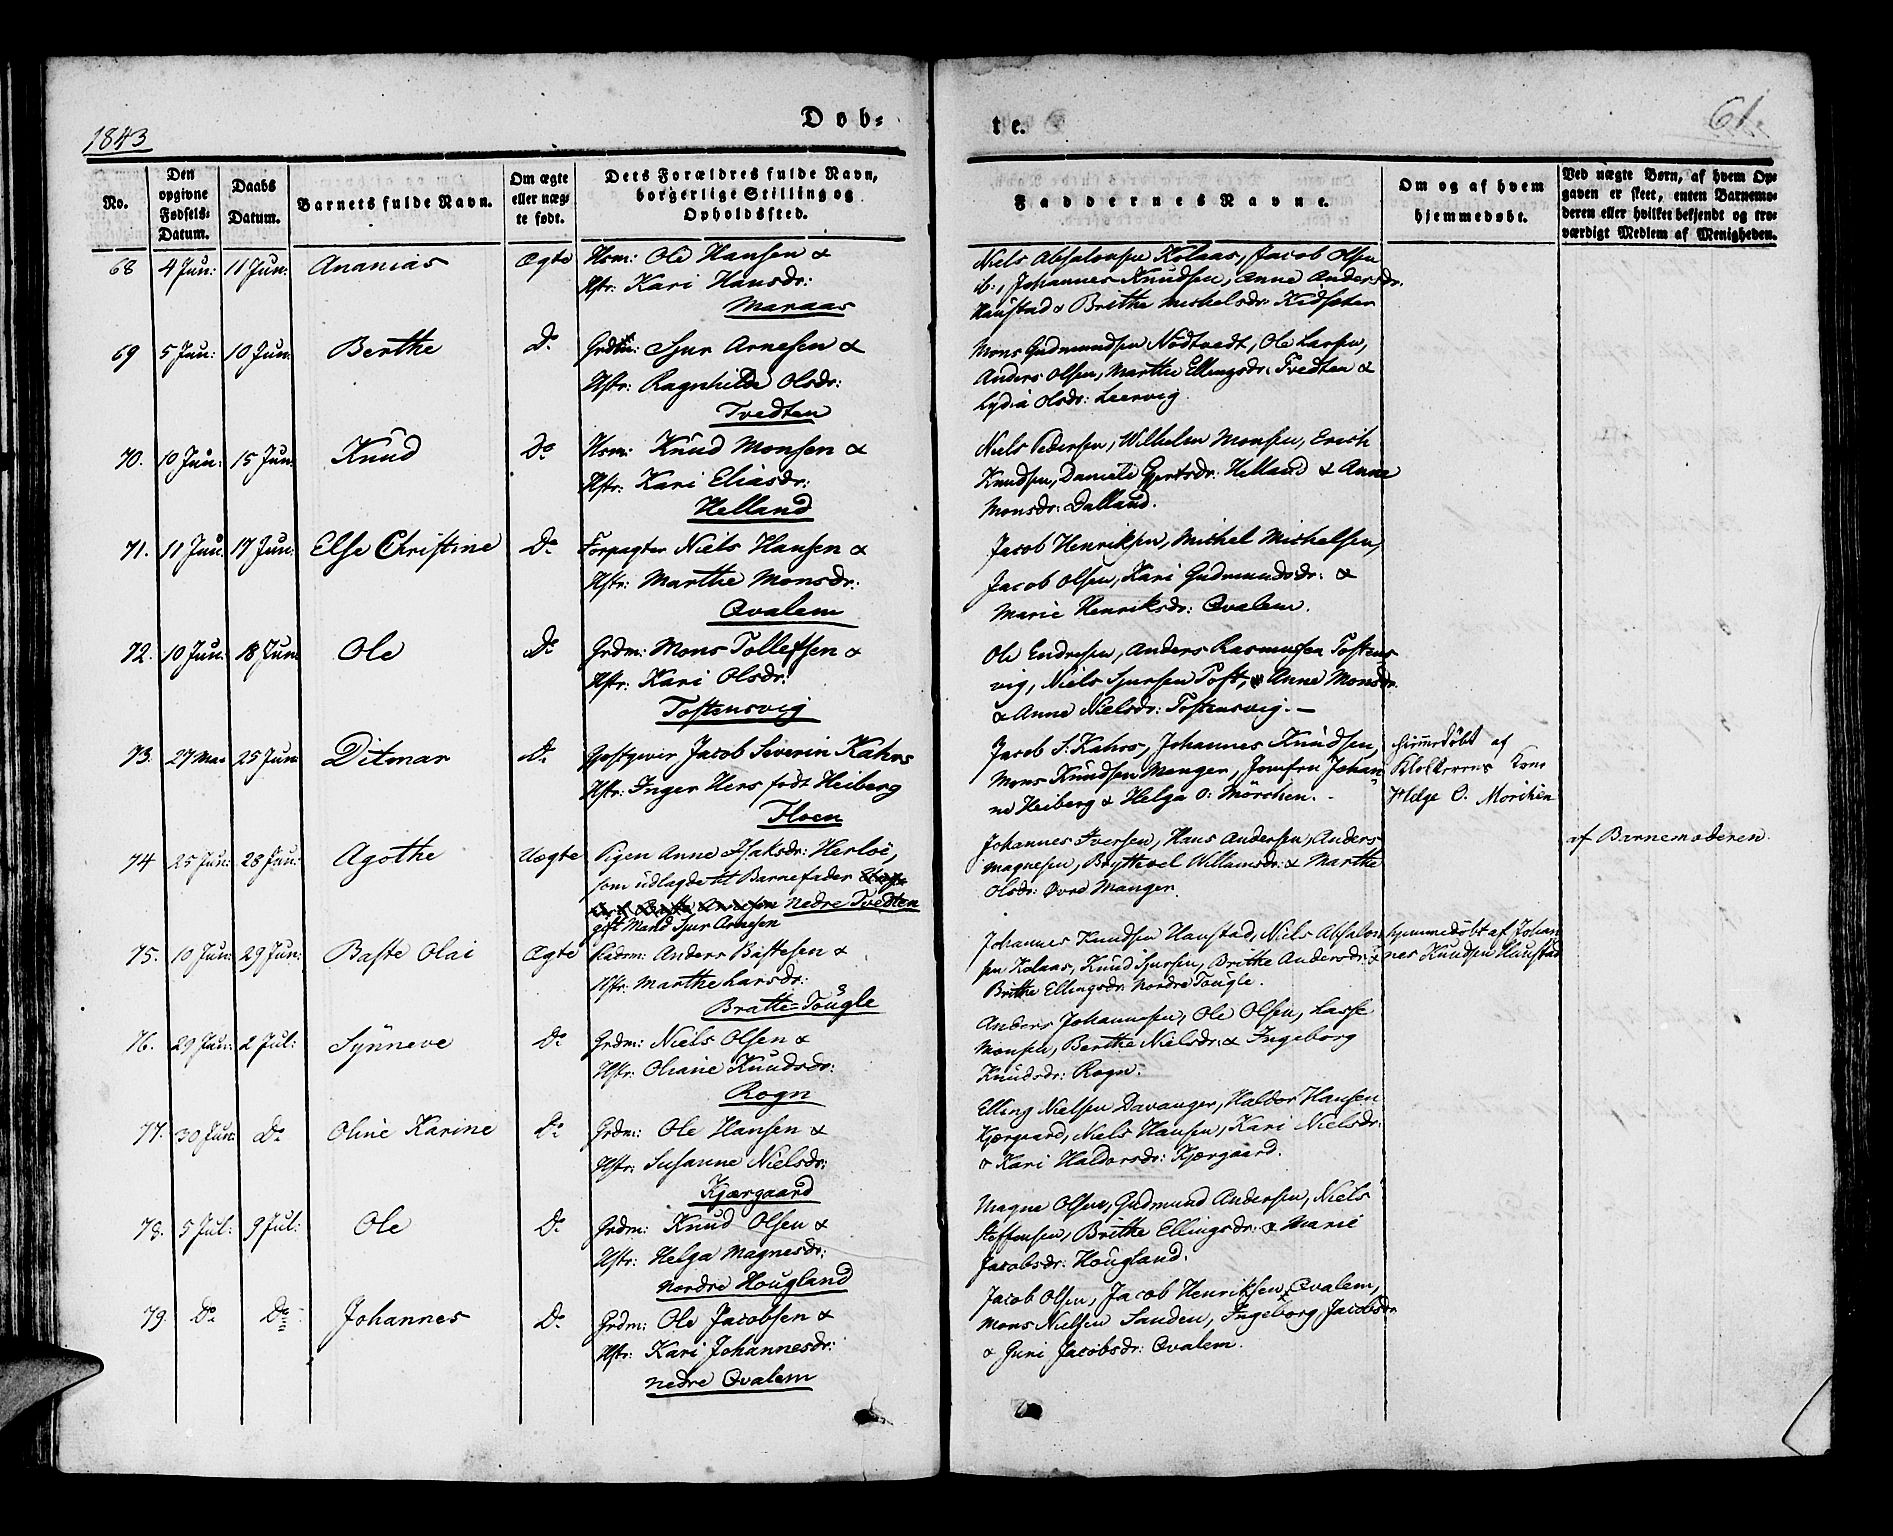 1843
Døb-
te.
61.
No.
Den opgivne Fødsels-Datum.
Daabs Datum.
Barnets fulde Navn.
Om ægte eller uægte født.
Dets Forældres fulde Navn, borgerlige Stilling og Opholdssted.
Faddernes Navne.
Om og af hvem hjemmedøbt.
Ved uægte Børn, af hvem Opgaven er skeet, enten Barnemoderen eller hvilket bekjendt og troværdigt Medlem af Menigheden.
68 4 Jun: 11 Jun: Ananias Ægte Hsm: Ole Hansen &
Hstr: Kari Hansdr:
Maraas
Niels Absalonsen Kolaas, Jacob Olsen
ib:, Johannes Knudsen, Anne Andersdr.
Haustad & Brithe Michelsdr: Kidsæter
69 5 Jun: 10 Jun: Berthe Do Grdm: Sjur Arnesen &
Hstr: Ragnhilda Olsdr:
Tvedten
Mons Gudmundsen Nödtvedt, Ole Larsen,
Anders Olsen, Marthe Ellingsdr: Tvedten &
Lydia Olsdr: Leervig.
70. 10 Jun: 15 Jun: Knud Do Hsm: Knud Monsen &
Hstr: Kari Eliasdr:
Helland
Niels Pedersen, Wilhelm Monsen, Erich
Knudsen, Daniele Gjertsdr: Helland & Anne
Monsdr: Dalland.
71. 11 Jun: 17 Jun: Else Christine Do Forpagter Niels Hansen &
Hstr: Marthe Monsdr:
Qvalem
Jacob Henriksen, Michel Michelsen,
Jacob Olsen, Kari Gudmundsdr: &
Marie Henriksdr: Qvalem.
72. 10 Jun: 18 Jun: Ole Do Grdm: Mons Tollefsen &
Hstr: Kari Olsdr:
Tostensvig
Ole Endresen, Anders Rasmusen Tostens
vig, Niels Sjursen Toft, Anne Monsdr.
& Anne Nielsdr: Tostensvig.—
73. 27 Mai 25 Jun: Ditmar Do Gjestgiver Jacob Severin Kahrs
Hstr: Inger Hers født Heiberg
Floen
Jacob S: Kahrs, Johannes Knudsen,
Mons Knudsen Manger, Jomfru Johan
ne Heiberg & Helga O: Mörchen.
hjemmedöbt af
Klokkerens Kone
Helge O. Morchen
74 25 Jun: 28 Jun: Agothe Uægte Pigen Anne Isaksdr: Herlöe,
som udlagde til Barnefader
Nedre Tvedten
gift Mand Sjur Arnesen
Johannes Iversen, Hans Andersen, Anders
Magnesen, Brythevel Willumsdr: & Marthe
Olsdr: Övre Manger.
af Barnemoderen.
75. 10 Jun: 29 Jun: Baste Olai Ægte Anders Bastesen &
Hstr: Marthe Larsdr:
Bratte-Tougle
Johannes Knudsen Haustad, Niels Absalon
sen Kolaas, Knud Sjursen, Brithe Andersdr: &
Brithe Ellingsdr: Nordre Tougle.
hjemmedöbt af Johan
nes Knudsen Haustad
76. 29 Jun: 2 Jul: Synneve Do Grdm: Niels Olsen &
Hstr: Oliane Knudsdr:
Rogn
Anders Johannesen, Ole Olsen, Lasse
Monsen, Berthe Nielsdr: & Ingeborg
Knudsdr: Rogn.
77. 30 Jun: Do Oline Karine Do Grdm: Ole Hansen &
Hstr: Susanne Nielsdr:
Kjærgaard
Elling Nielsen Davanger, Haldor Hansen
Kjærgaard, Niels Hansen, Kari Nielsdr:
& Kari Haldorsdr: Kjærgaard.
78. 5 Jul: 9 Jul: Ole Do Grdm: Knud Olsen &
Hstr: Helga Magnesdr:
Nordre Hougland
Magne Olsen, Gudmund Andersen, Niels
Steffensen, Brithe Ellingsdr: & Marie
Jacobsdr: Hougland.
79. Do Do Johannes Do Grdm: Ole Jacobsen &
Hstr: Kari Johannesdr:
nedre Qvalem
Jacob Olsen, Jacob Henriksen Qvalem,
Mons Nielsen Sanden, Ingeborg Jacobsdr
& Guri Jacobsdr: Qvalem.